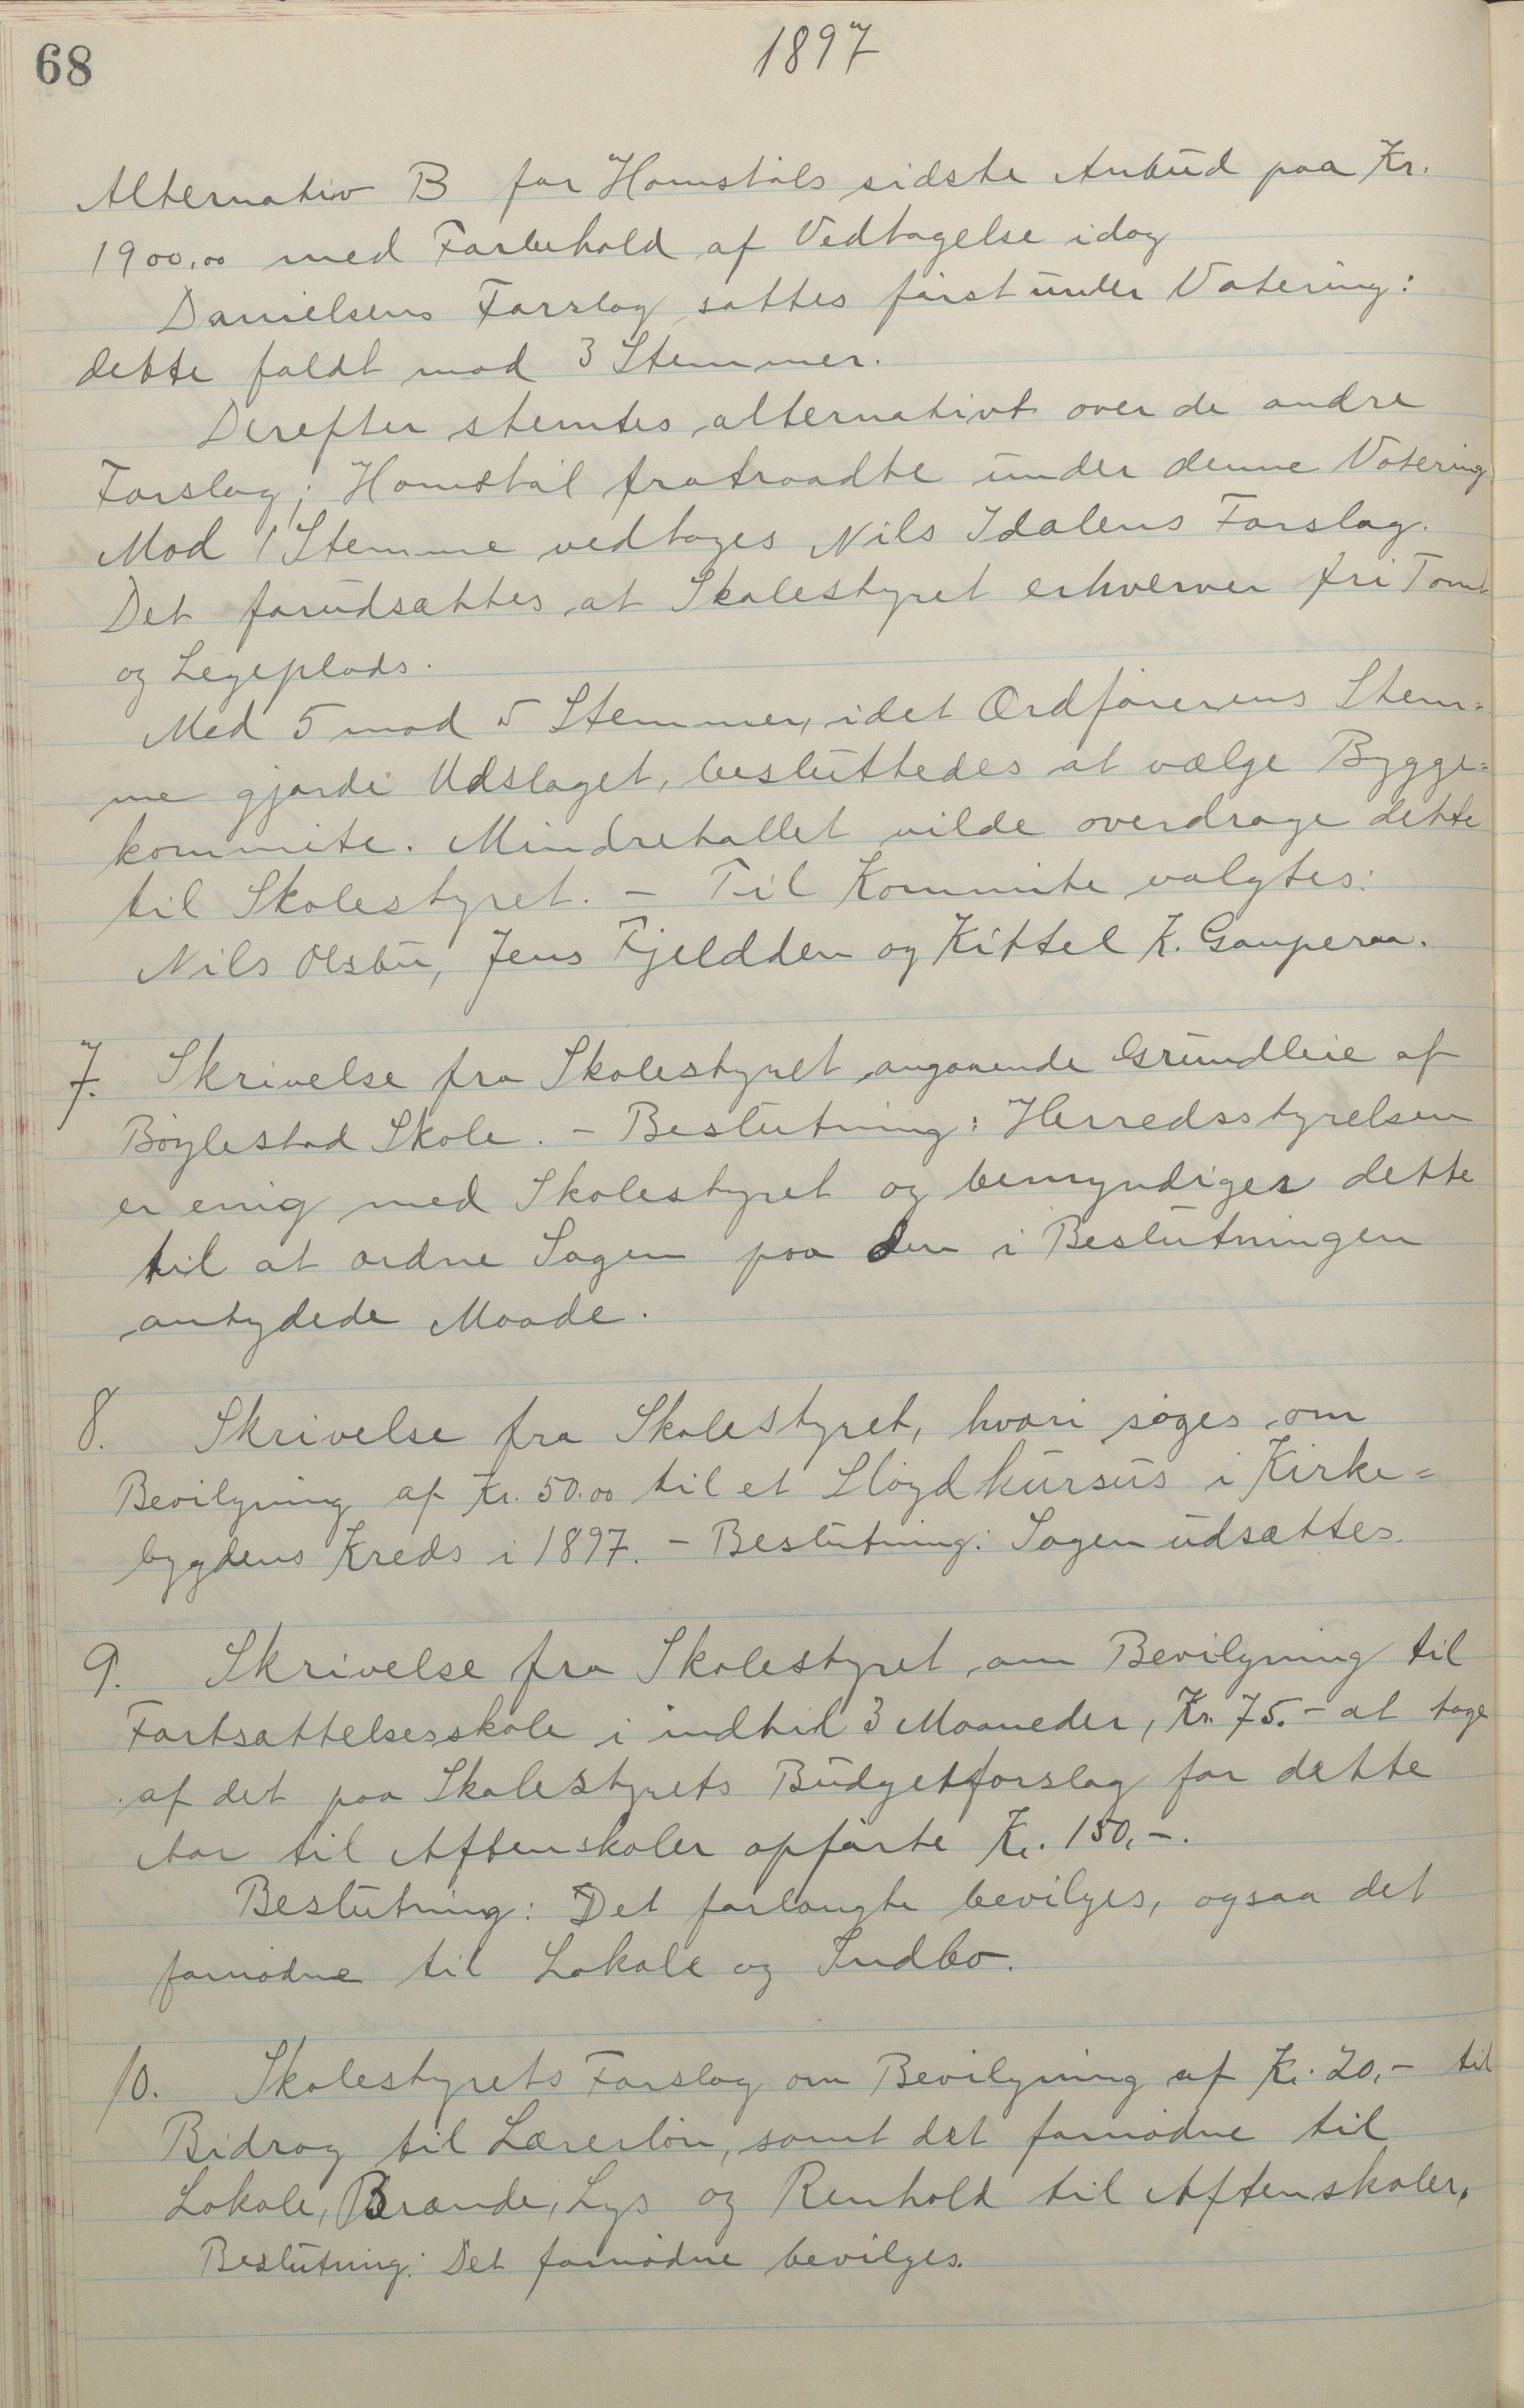 68
1897
Alternativ B for Homstøls sidste Anbud paa Kr.
1900,00 med Forbehold af Vedtagelse idag
Danielsens Forslag sattes først under Votering:
dette faldt mod 3 Stemmer.
Derefter stemtes alternativt over de andre
Forslag; Homstøl fratraadte under denne Votering
Mod 1 Stemme vedtages Nils Idalens Forslag.
Det forudsættes at Skolestyret erhverver fri Tomt
og Legeplads.
Med 5 mod 5 Stemmer, idet Ordførerens Stem-
me gjorde Udslaget, besluttedes at vælge Bygge-
kommite. Mindretallet vilde overdrage dette
til Skolestyret. – Til Kommite valgtes:
Nils Olsbu, Jens Fjeldden og Kittel K. Gauperaa.
7. Skrivelse fra Skolestyret angaaende Grundleie af
Bøylestad Skole. – Beslutning: Herredsstyrelsen
er enig med Skolestyret og bemyndiger dette
til at ordne Sagen paa den i Beslutningen
antydede Maade.
8. Skrivelse fra Skolestyret, hvori søges om
Bevilgning af Kr. 50.00 til et Sløydkursus i Kirke-
bygdens Kreds i 1897. – Beslutning: Sagen udsættes.
9. Skrivelse fra Skolestyret om Bevilgning til
Fortsættelsesskole i indtil 3 Maaneder, Kr. 75.– at tage
af det paa Skolestyrets Budgetforslag for dette
Aar til Aftenskoler opførte Kr. 150,–.
Beslutning: Det forlangte bevilges, ogsaa det
fornødne til Lokale og Indbo.
10. Skolestyrets Forslag om Bevilgning af Kr. 20,– til
Bidrag til Lærerløn, samt det fornødne til
Lokale, Brænde, Lys og Renhold til Aftenskoler,
Beslutning: Det fornødne bevilges.